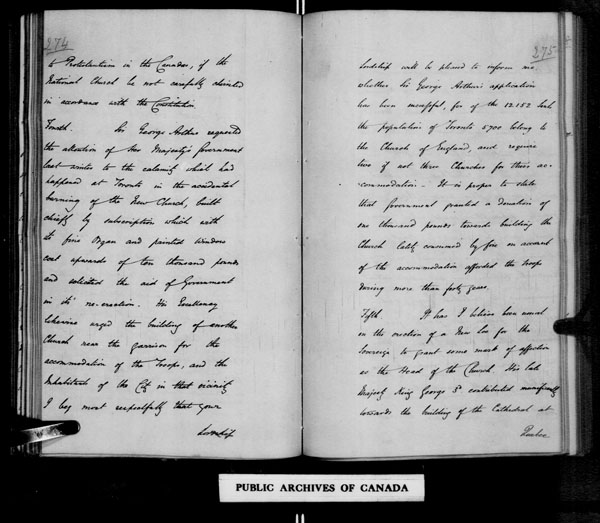 274
to Protestantism in the Canadas, if the
National Church be not carefully cherished
in accordance with the Constitution
Fourth. Sir George Arthur requested
the attention of Her Majesty's Government
last winter to the calamity which had
happened at Toronto in the accidental
burning of the New Church, built
chiefly by subscription which with
its fine Organ and painted Windows
cost upwards of ten thousand pounds
and solicited the aid of Government
in its re-erection. His Excellency
likewise urged the building of another
Church near the garrison for the
accommodation of the Troops, and the
Inhabitants of the City in that vicinity
I beg most respectfully that your
Lordship
275
Lordship will be pleased to inform me
whether Sir George Arthur's application
has been successful, for of the 12.152 Souls
the population of Toronto 5700 belong to
the Church of England, and require
two if not three Churches for their ac-
commodation - It is proper to state
that Government granted a donation of
one thousand pounds towards building the
Church lately consumed by fire on account
of the accommodation afforded the troops
during more than forty years.
Fifth. It has I believe been usual
in the erection of a New See for the
Sovereign to grant some mark of affection
as the Head of the Church. His late
Majesty King George 3d contributed munificently
towards the building of the Cathedral at
Quebec
PUBLIC ARCHIVES OF CANADA